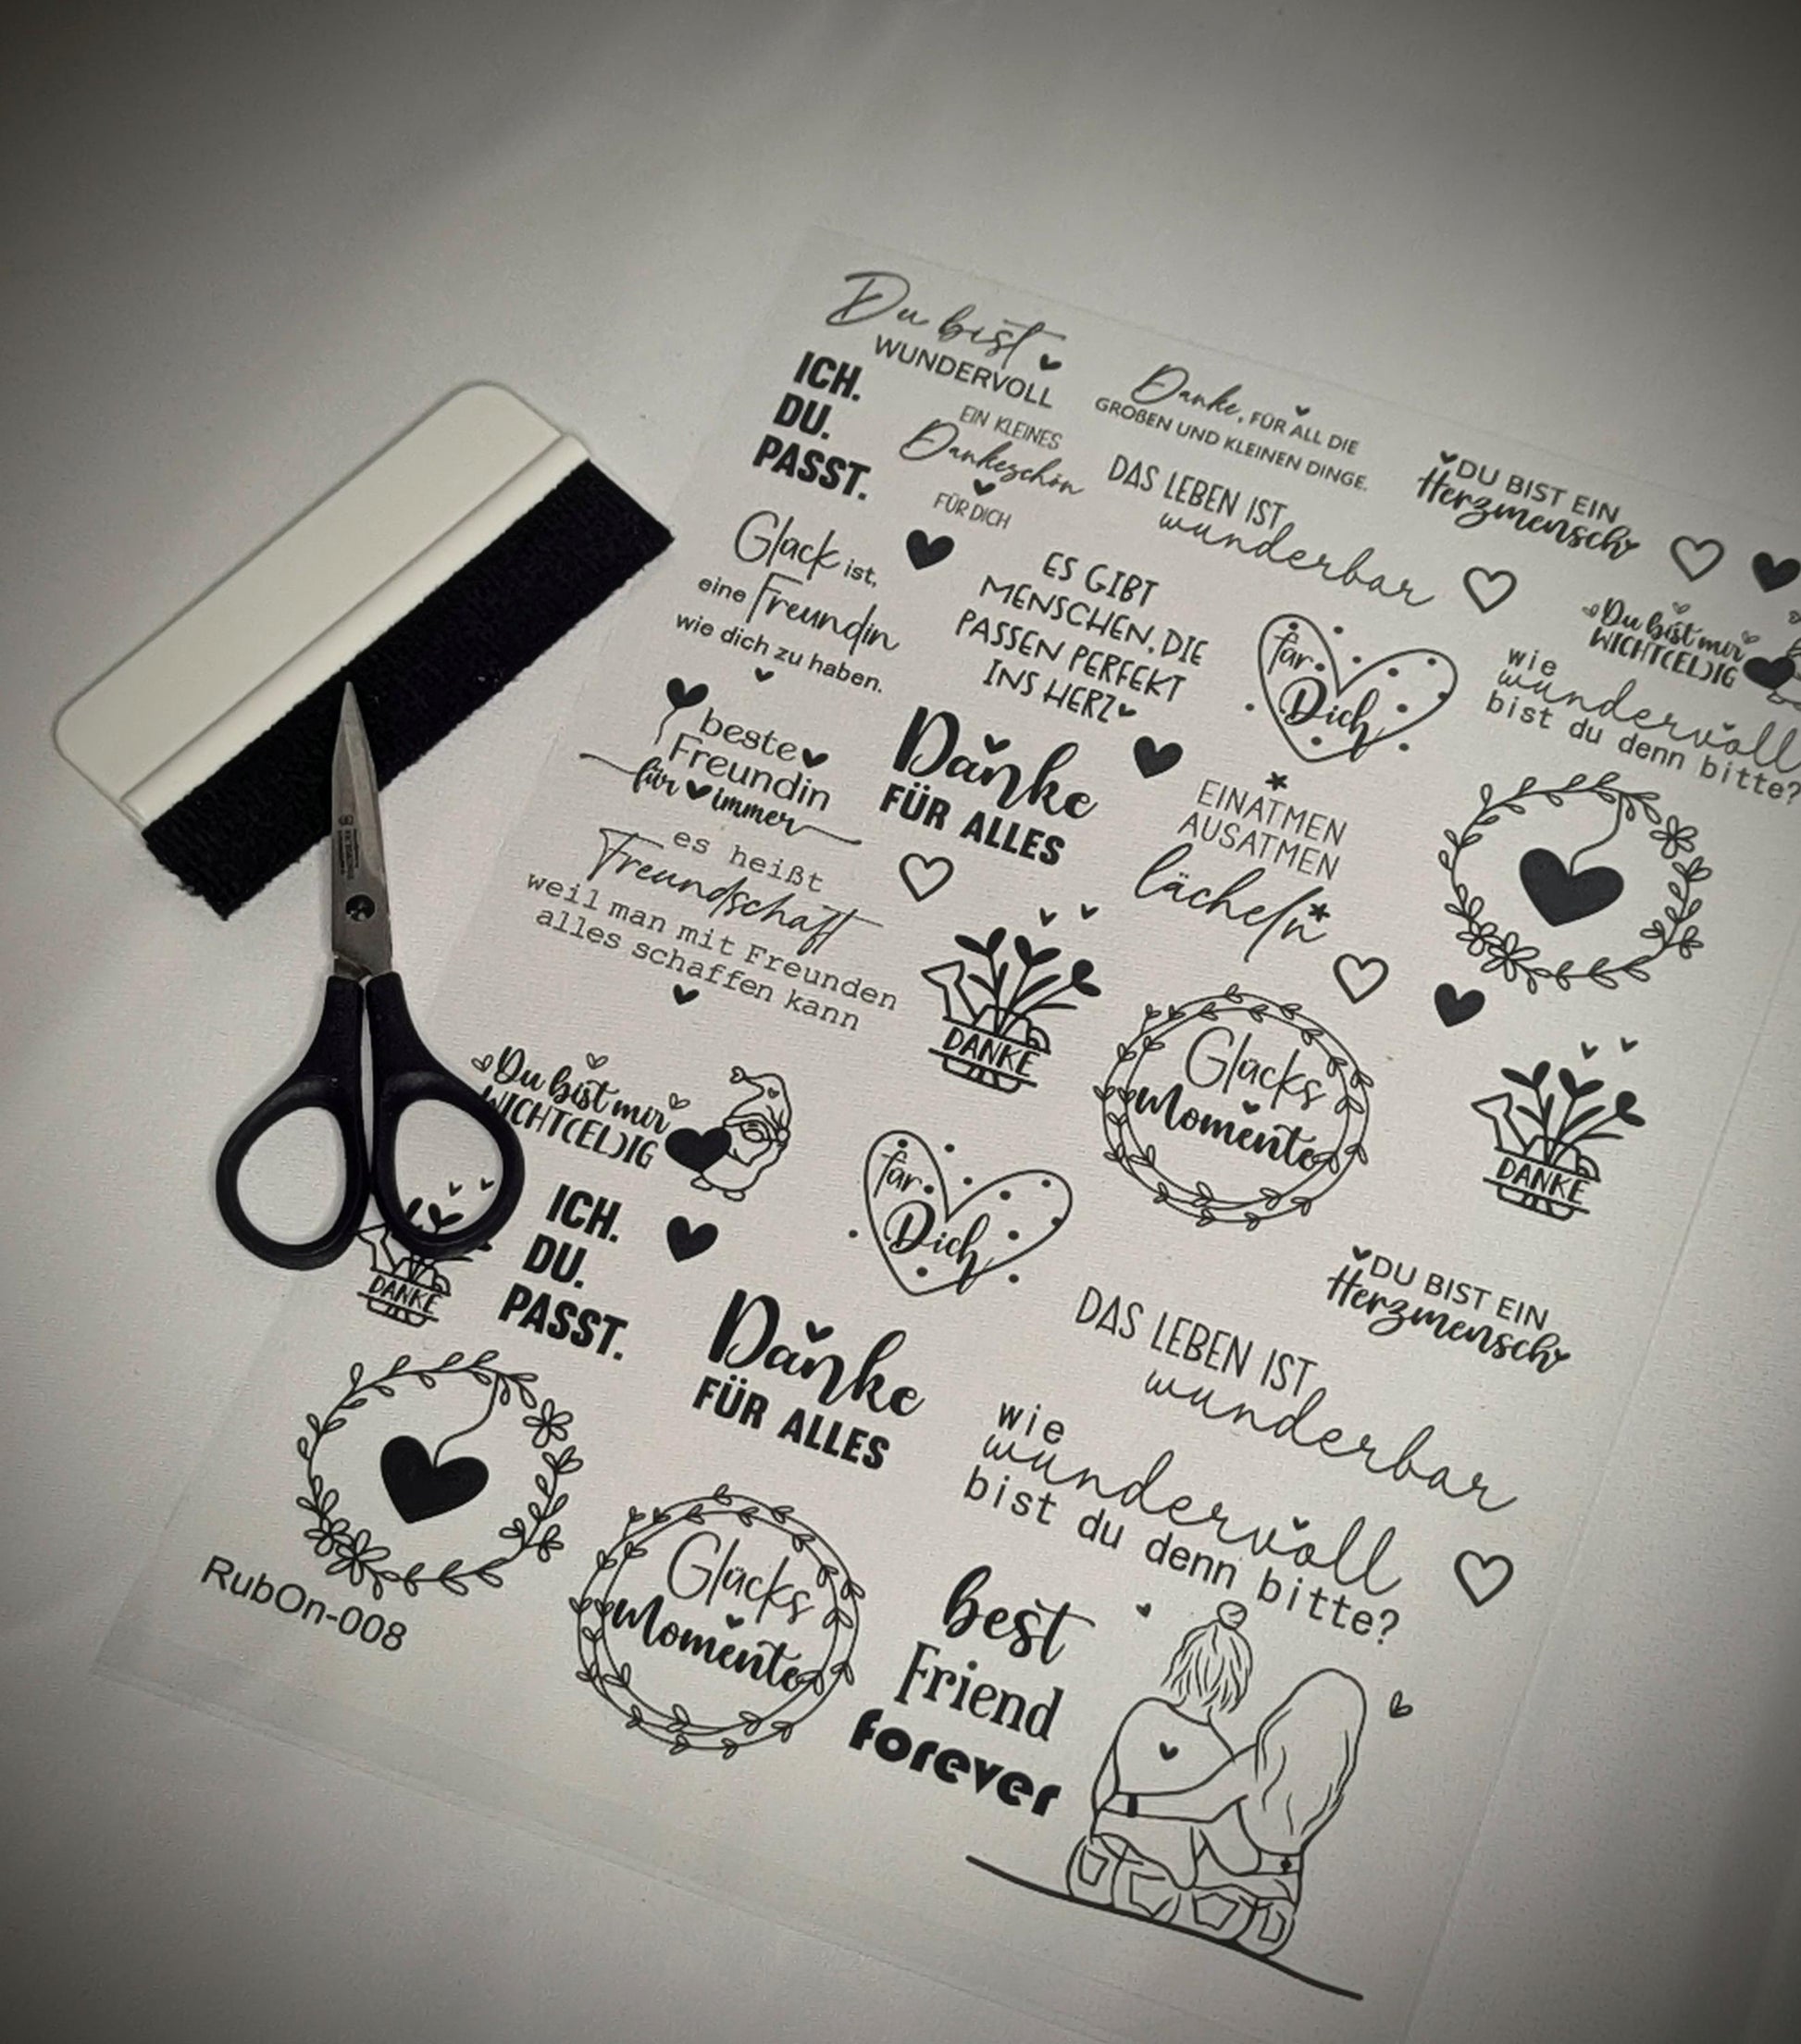 Du bist
WUNDERVOLL
ICH.
DU.
PASST.
EIN KLEINES
Dankeschön
FÜR DICH
Danke, FÜR ALL DIE
GROßEN UND KLEINEN DINGE.
DAS LEBEN IST
wunderbar
DU BIST EIN
Herzmensch
Glück ist,
eine Freundin
wie dich zu haben.
ES GIBT
MENSCHEN, DIE
PASSEN PERFEKT
INS HERZ
für
Dich
Du bist mir
WICHT(EL)IG
wie
wundervoll
bist du denn bitte?
beste
Freundin
für immer
Danke
FÜR ALLES
EINATMEN
AUSATMEN
lächeln
es heißt
Freundschaft
weil man mit Freunden
alles schaffen kann
DANKE
Glücks
Momente
DANKE
Du bist mir
WICHT(EL)IG
DANKE
ICH.
DU.
PASST.
für
Dich
DU BIST EIN
Herzmensch
Danke
FÜR ALLES
DAS LEBEN IST
wunderbar
wie
wundervoll
bist du denn bitte?
RubOn-008
Glücks
Momente
best
Friend
forever